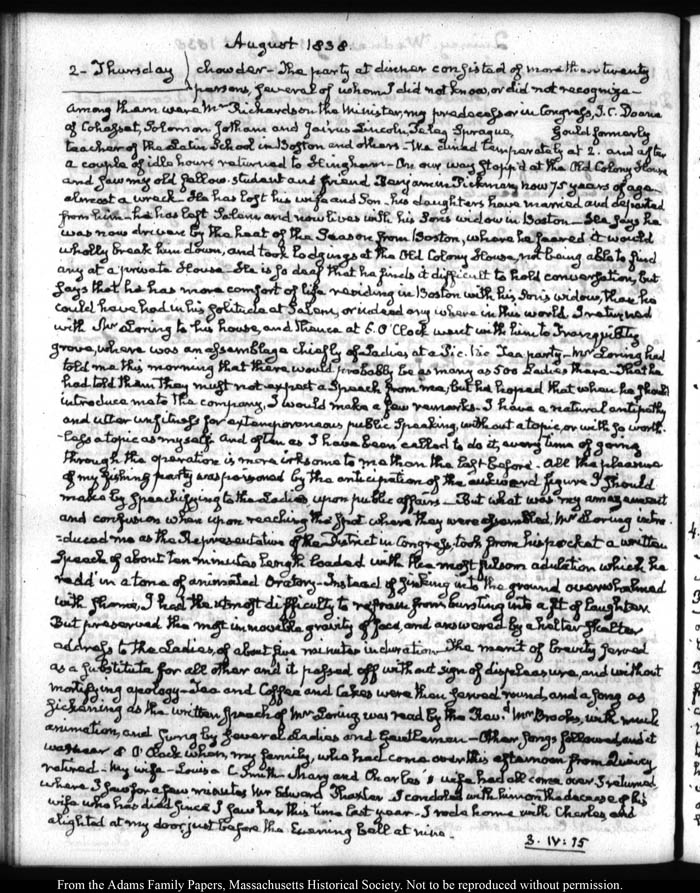 August 1838.
2 - Thursday } chowder - The party at dinner consisted of more than twenty
persons, several of whom I did not know, or did not recognize -
Among them were Mr Richardson the Minister, my predecessor in Congress, J. C. Doane
of Cohasset, Solomon Jotham and Jairus Lincoln, Peleg Sprague, Gould formerly
teacher of the Latin School in Boston and others - We dined temperately at 2. and after
a couple of idle hours returned to Hingham - On our way stopp'd at the Old Colony House
and saw my old fellow-student and friend Benjamin Pickman, now 75 years of age -
almost a wreck - He has lost his wife and Son - his daughters have married and departed
from him - he has left Salem and now lives with his Sons widow in Boston - He says he
was now driven by the heat of the Season from Boston, where he feared it would
wholly break him down, and took lodgings at the Old Colony House, not being able to find
any at a private House - He is so deaf that he finds it difficult to hold conversation, but
says that he has more comfort of life residing in Boston with his Son's widow, than he
could have had in his solitude at Salem, or indeed any where in this world. I returned
with Mr Loring to his house, and thence at 5. O'Clock went with him to Tranquillity
grove, where was an assemblage chiefly of Ladies at a Pic. Nic Tea party - Mr Loring had
told me this morning that there would probably be as many as 500 Ladies there - That he
had told them they must not expect a Speech from me, but he hoped that when he should
introduce me to the company, I would make a few remarks - I have a natural antipathy
and utter unfitness for extemporaneous public speaking, without a topic, or with so worth-
-less a topic as myself. And often as I have been called to do it, every time of going
through the operation is more irksome to me than the last before - All the pleasure
of my fishing party was poisoned by the anticipation of the awkward figure I should
make by speechifying to the Ladies upon public affairs - But what was my amazement
and confusion when upon reaching the spot where they were assembled, Mr Loring intro-
-duced me as the Representative of the District in Congress, took from his pocket a written
Speech of about ten minutes length loaded with the most fulsom adulation which he
read in a tone of animated Oratory - Instead of sinking into the ground overwhelmed
with shame, I had the utmost difficulty to refrain from bursting into a fit of laughter
But preserved the most immovable gravity of face, and answered by a helter skelter
address to the Ladies, of about five minutes in duration - The merit of brevity served
as a substitute for all other and it passed off without sign of displeasure, and without
mortifying apology - Tea and Coffee and Cakes were then served round, and a song as
sickening as the written speech of Mr Loring was read by the Revd Mr Brooks, with much
animation, and sung by several Ladies and Gentlemen - Other songs followed, and it
was near 8 O'Clock when, my family, who had come over this afternoon from Quincy
retired - My wife - Louisa C. Smith - Mary and Charles's wife had all come over. I returned
where I saw for a few minutes Mr Edward Thaxter I condoled with him on the decease of his
wife who has died since I saw her this time last year - I rode home with Charles, and
alighted at my door just before the Evening bell at nine -
3. IV: 15
From the Adams Family Papers, Massachusetts Historical Society. Not to be reproduced without permission.